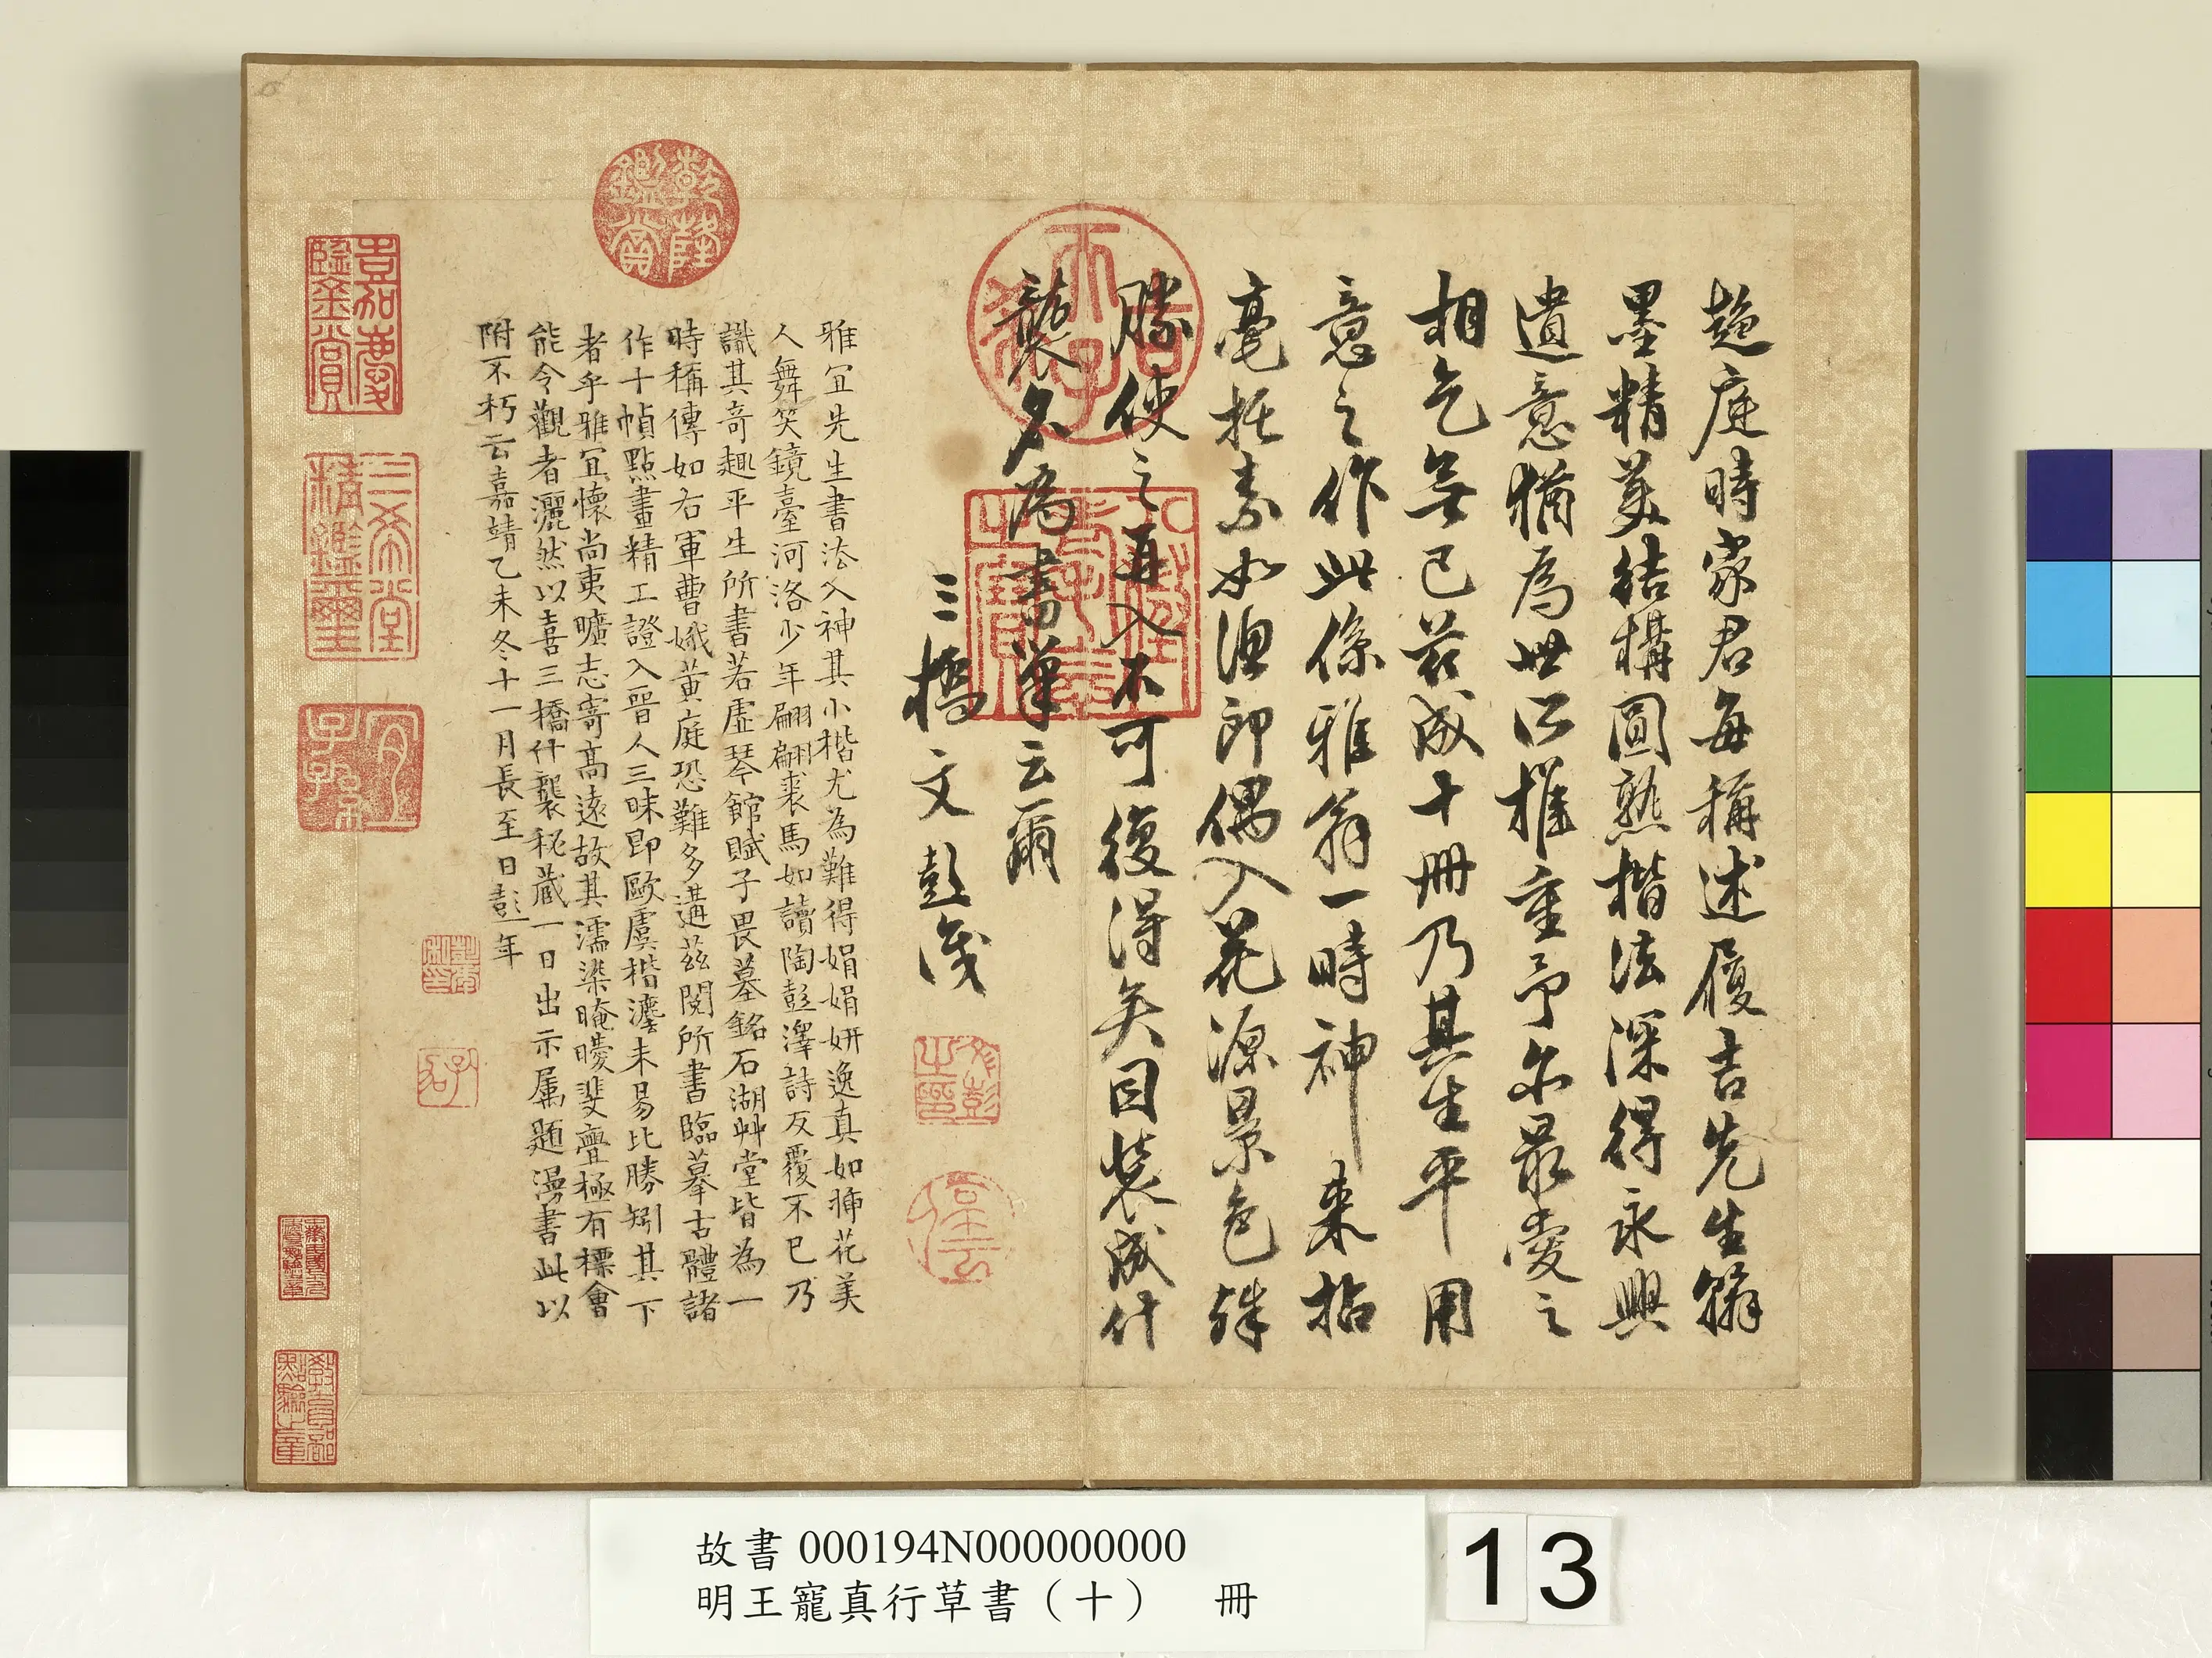 趨庭時家君每稱述履吉先生籍
墨精美結構圓熟楷法深得永興
遺意猶為世所推重予尔最愛之
相乞無已茲成十冊乃其生平用
意之作此係雅翁一時神來拈
毫拓素如漁郎偶入花源景色殊
勝使之再入不可復得矣因裝成什
襲名為書巢云爾
三橋文彭識
雅宜先生書法入神其小楷尤為難得娟娟妍逸真如插花美
人舞笑鏡臺河洛少年翩翩裘馬如讀陶彭澤詩反覆不已乃
識其奇趣平生所書若虛琴館賦子畏墓銘石湖艸堂皆為一
時稱傳如右軍曹娥黃庭恐難多遘茲閱所書臨摹古體諸
作十幀點畫精工證入晉人三昧即歐虞楷灋未易比勝矧其下
者乎雅宜懷尚夷曠志寄高遠故其濡染晻曖斐亹極有標會
能令觀者灑然以喜三橋什襲秘藏一日出示属題漫書此以
附不朽云嘉靖乙未冬十一月長至日彭年
古希天子
壽
乾隆鑑賞
嘉慶鑑賞
三希堂精鑑璽
宜子孫
文彭之印
故書000194N000000000
明王寵真行草書（十） 冊
13